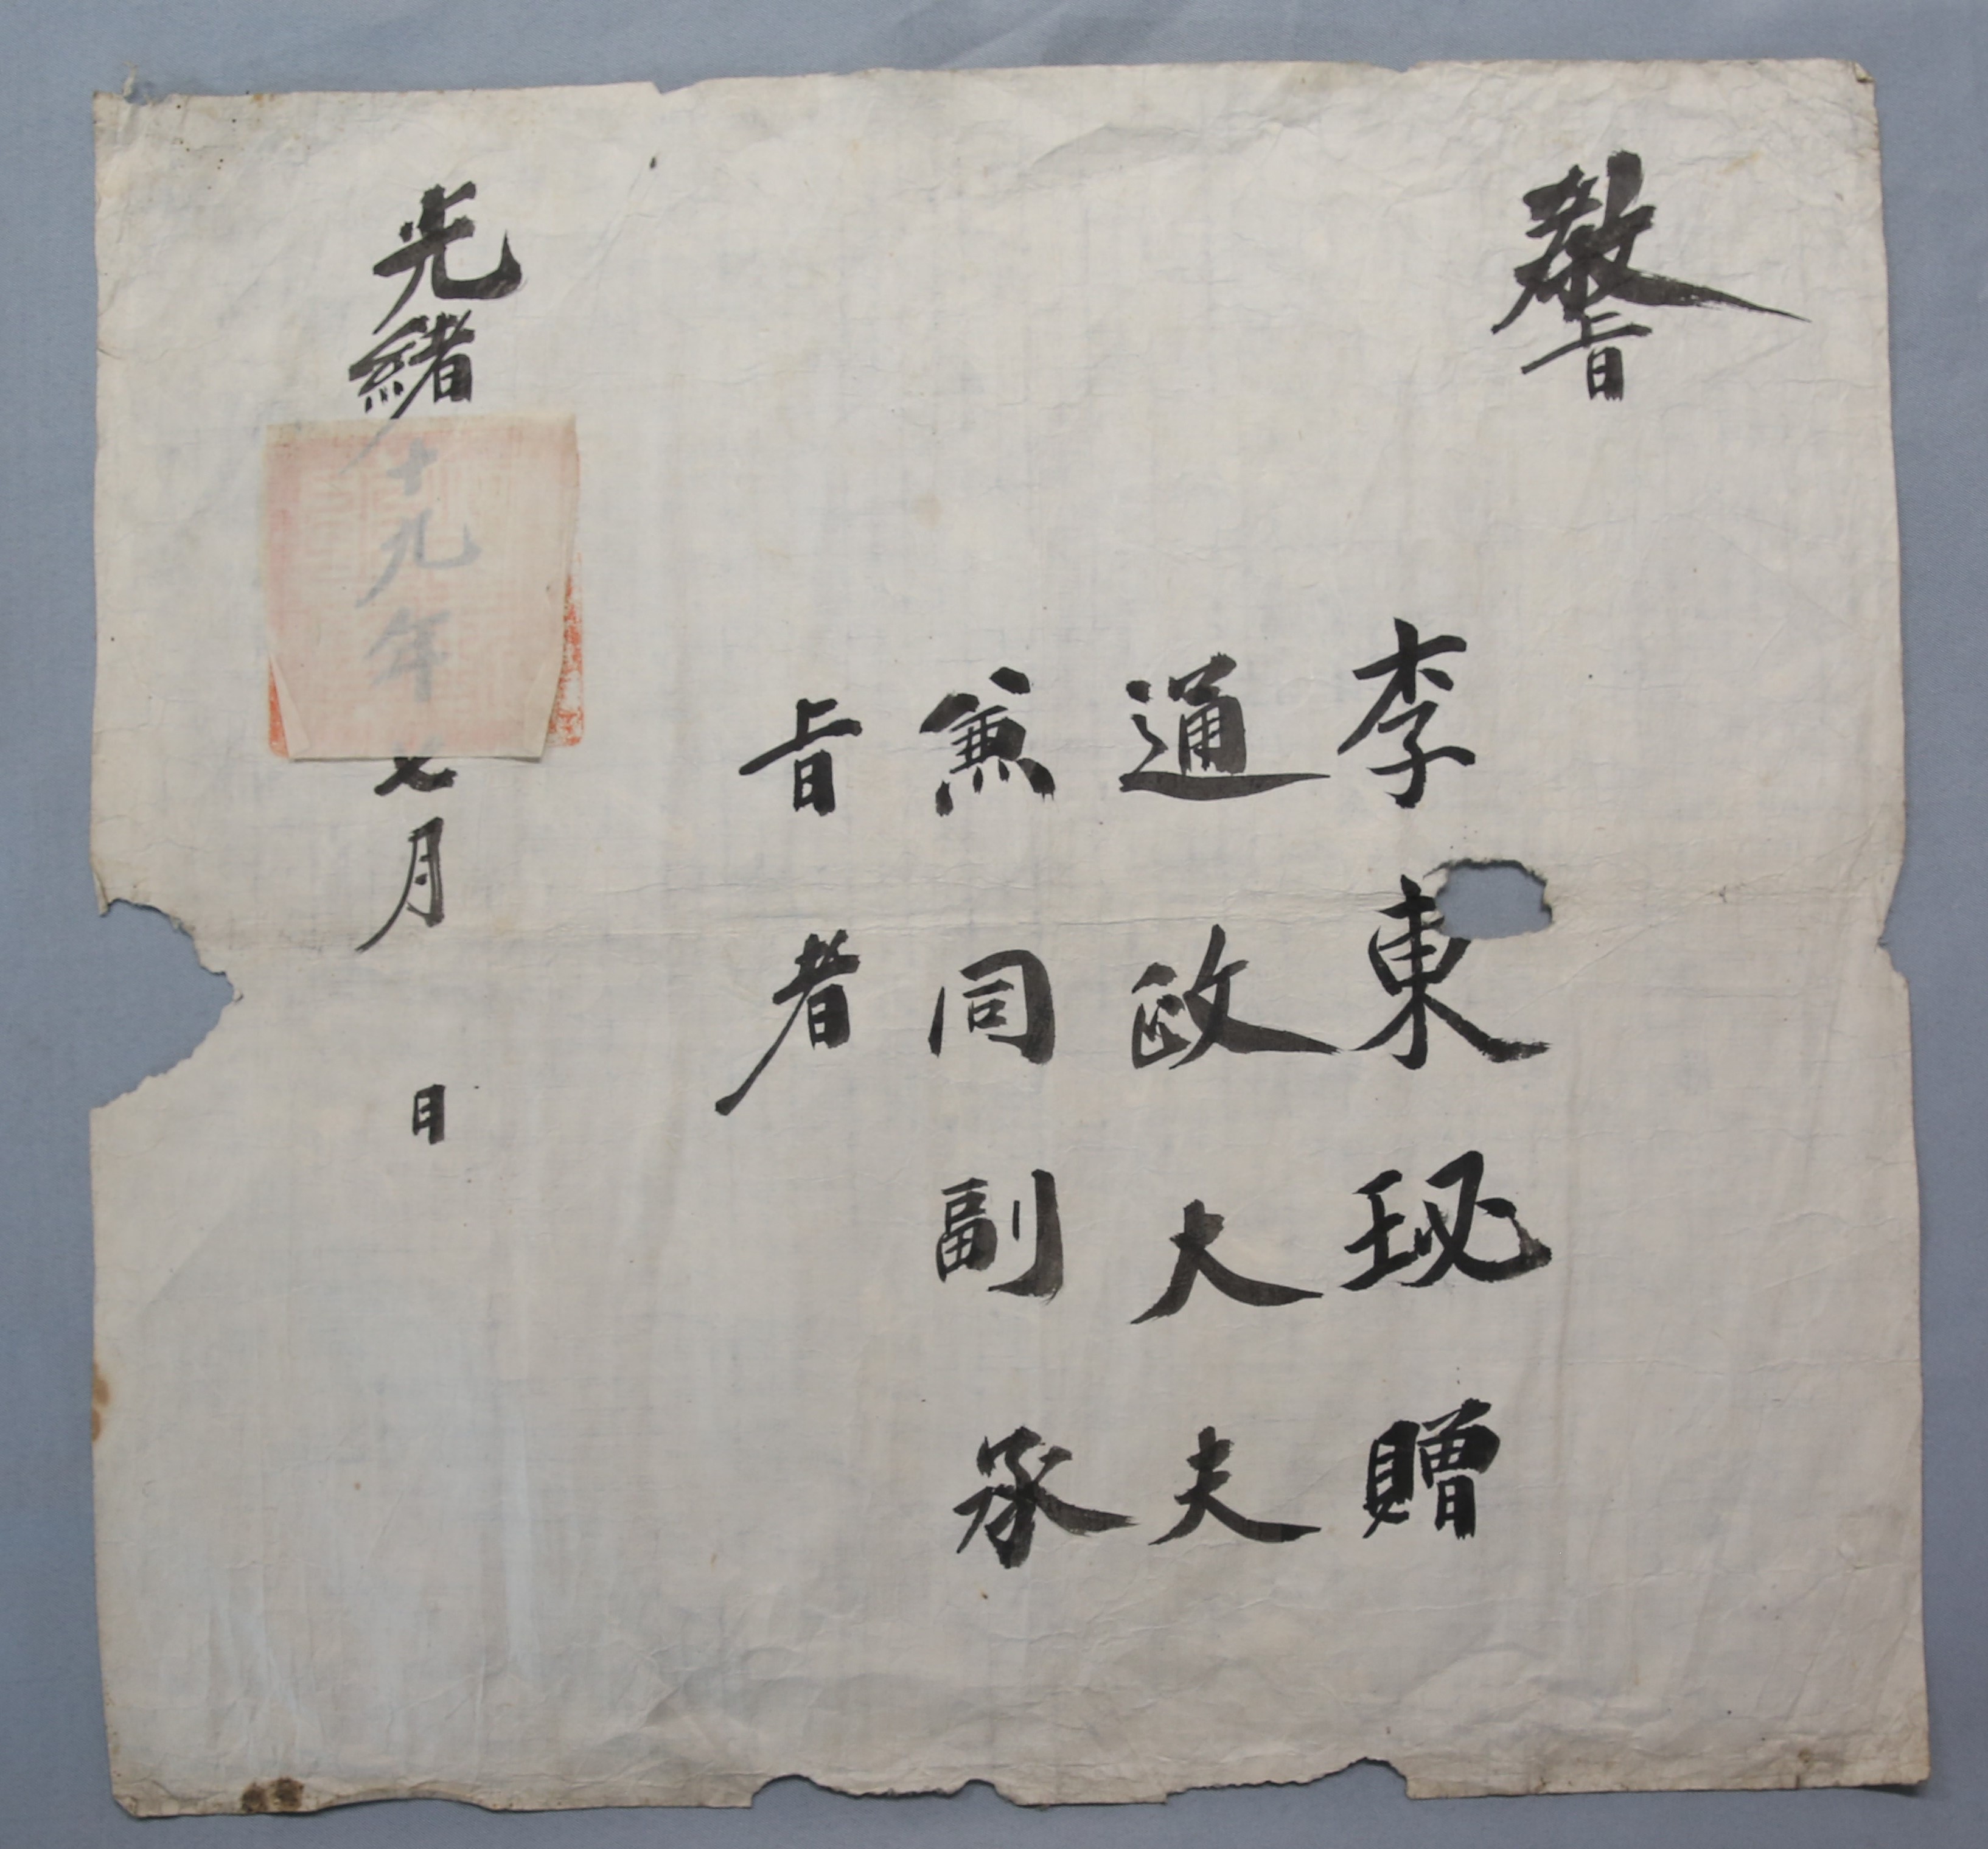 敎旨
李東珌贈
通政大夫
兼同副承
旨者
光緖十九年七月 日